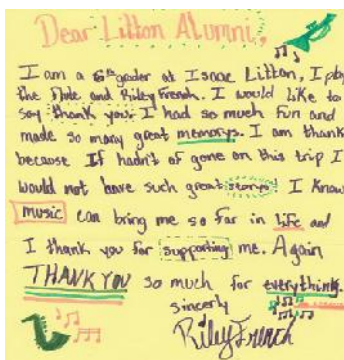 Dear Litton Alumni,
I am a 6th grader at Isaac Litton, I play
the flute and Riley French. I would like to
say thank you. I had so much fun and
made so many great memorys. I am thank
because If hadn't of gone on this trip I
would not have such great storys I know
music can bring me so far in life and
I thank you for supporting me. Again
THANK YOU so much for everything.
sincerly
Riley French